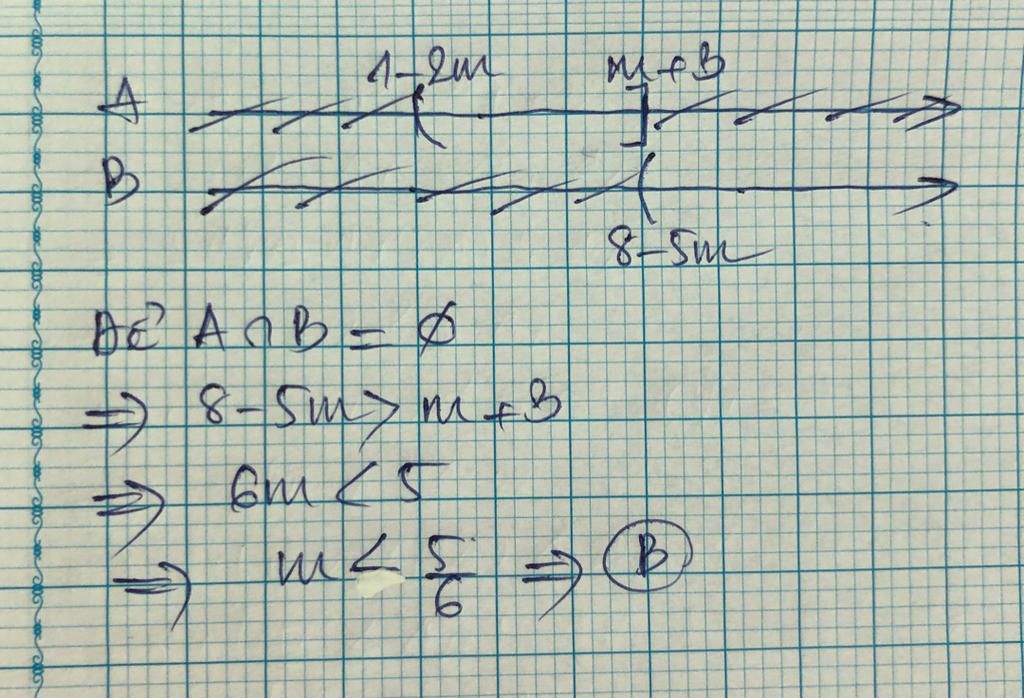 1-2m m+3
A ( ]
B (
8-5m
Để A ∩ B = ∅
⇒ 8-5m > m+3
⇒ 6m < 5
⇒ m < 5/6 ⇒ B